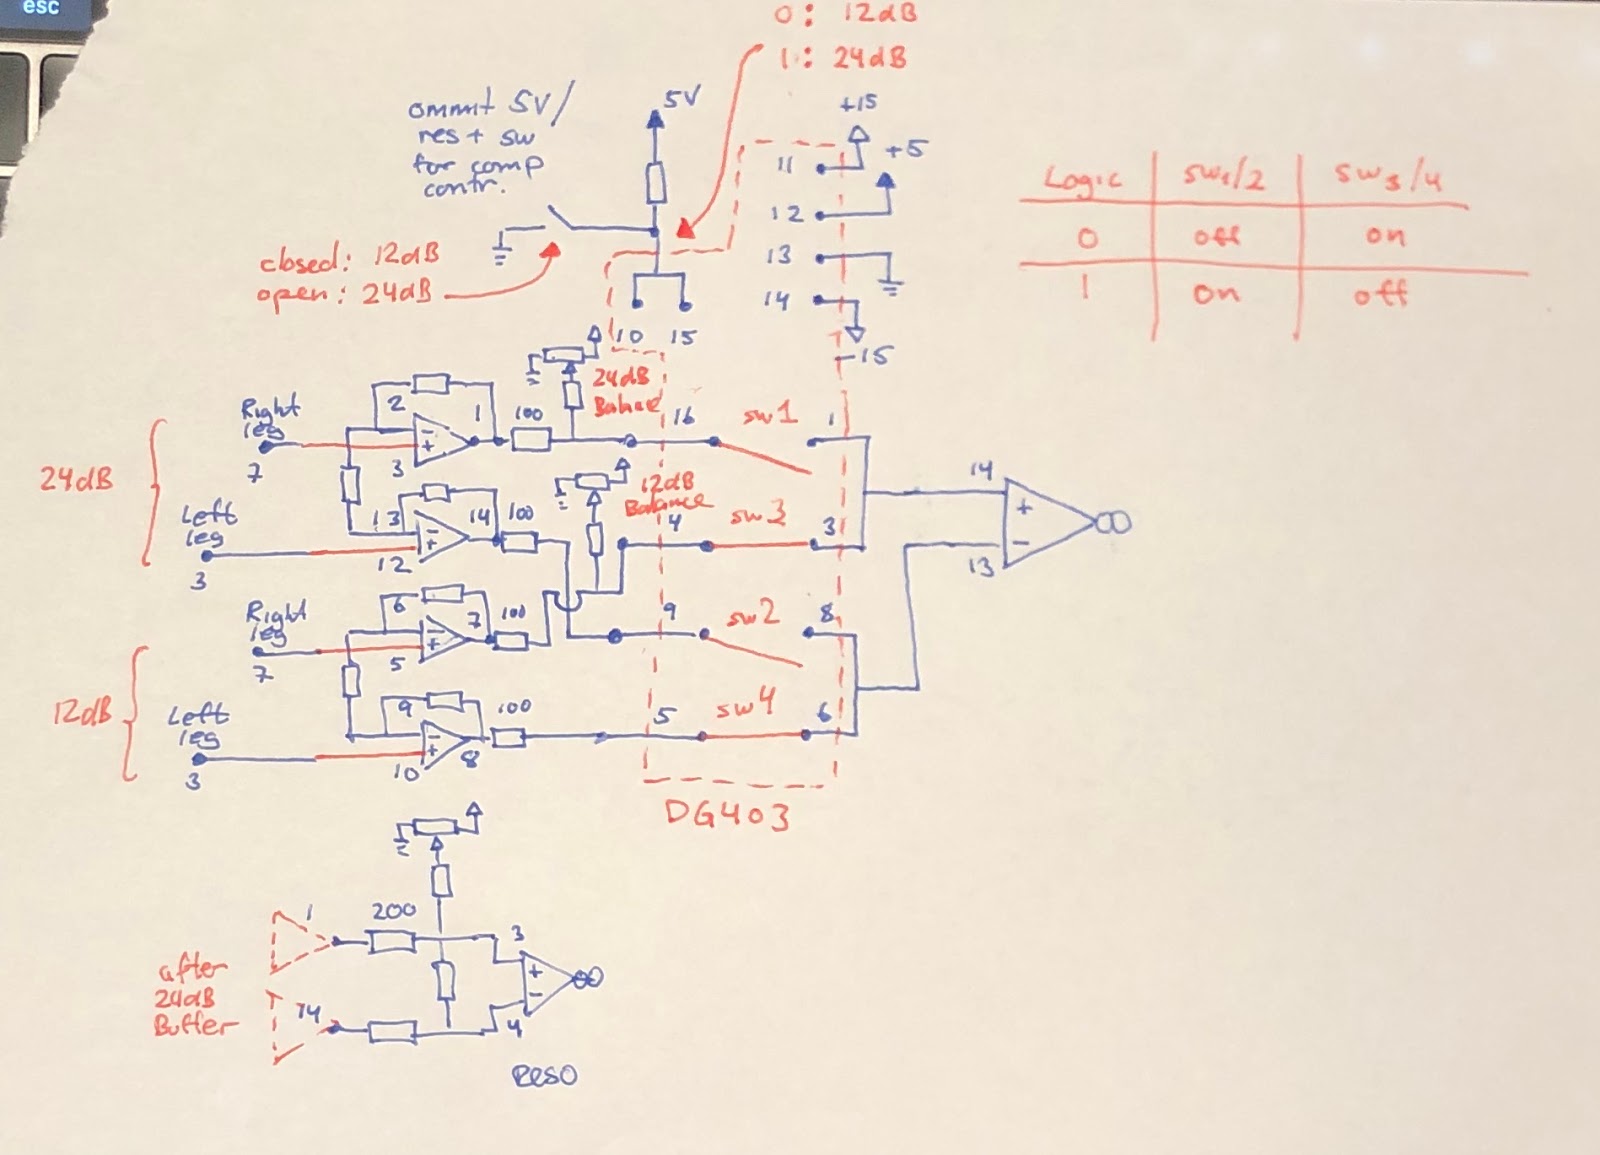 esc
0: 12dB
1: 24dB
ommit 5V/
res + sw
for comp
contr.
5V
+15
+5
11
12
13
14
-15
closed: 12dB
open: 24dB
10 15
Logic sw1/2 sw3/4
0 off on
1 on off
24dB
Right
leg
7
2
3
1
100
24dB
16
sw1
1
Left
leg
3
13
12
14
100
12dB
Balance
4
sw3
3
14
+
-
13
12dB
Right
leg
7
6
5
7
100
9
sw2
8
Left
leg
3
9
10
8
100
5
sw4
6
DG403
after
24dB
Buffer
1
14
200
3
+
-
4
RESO